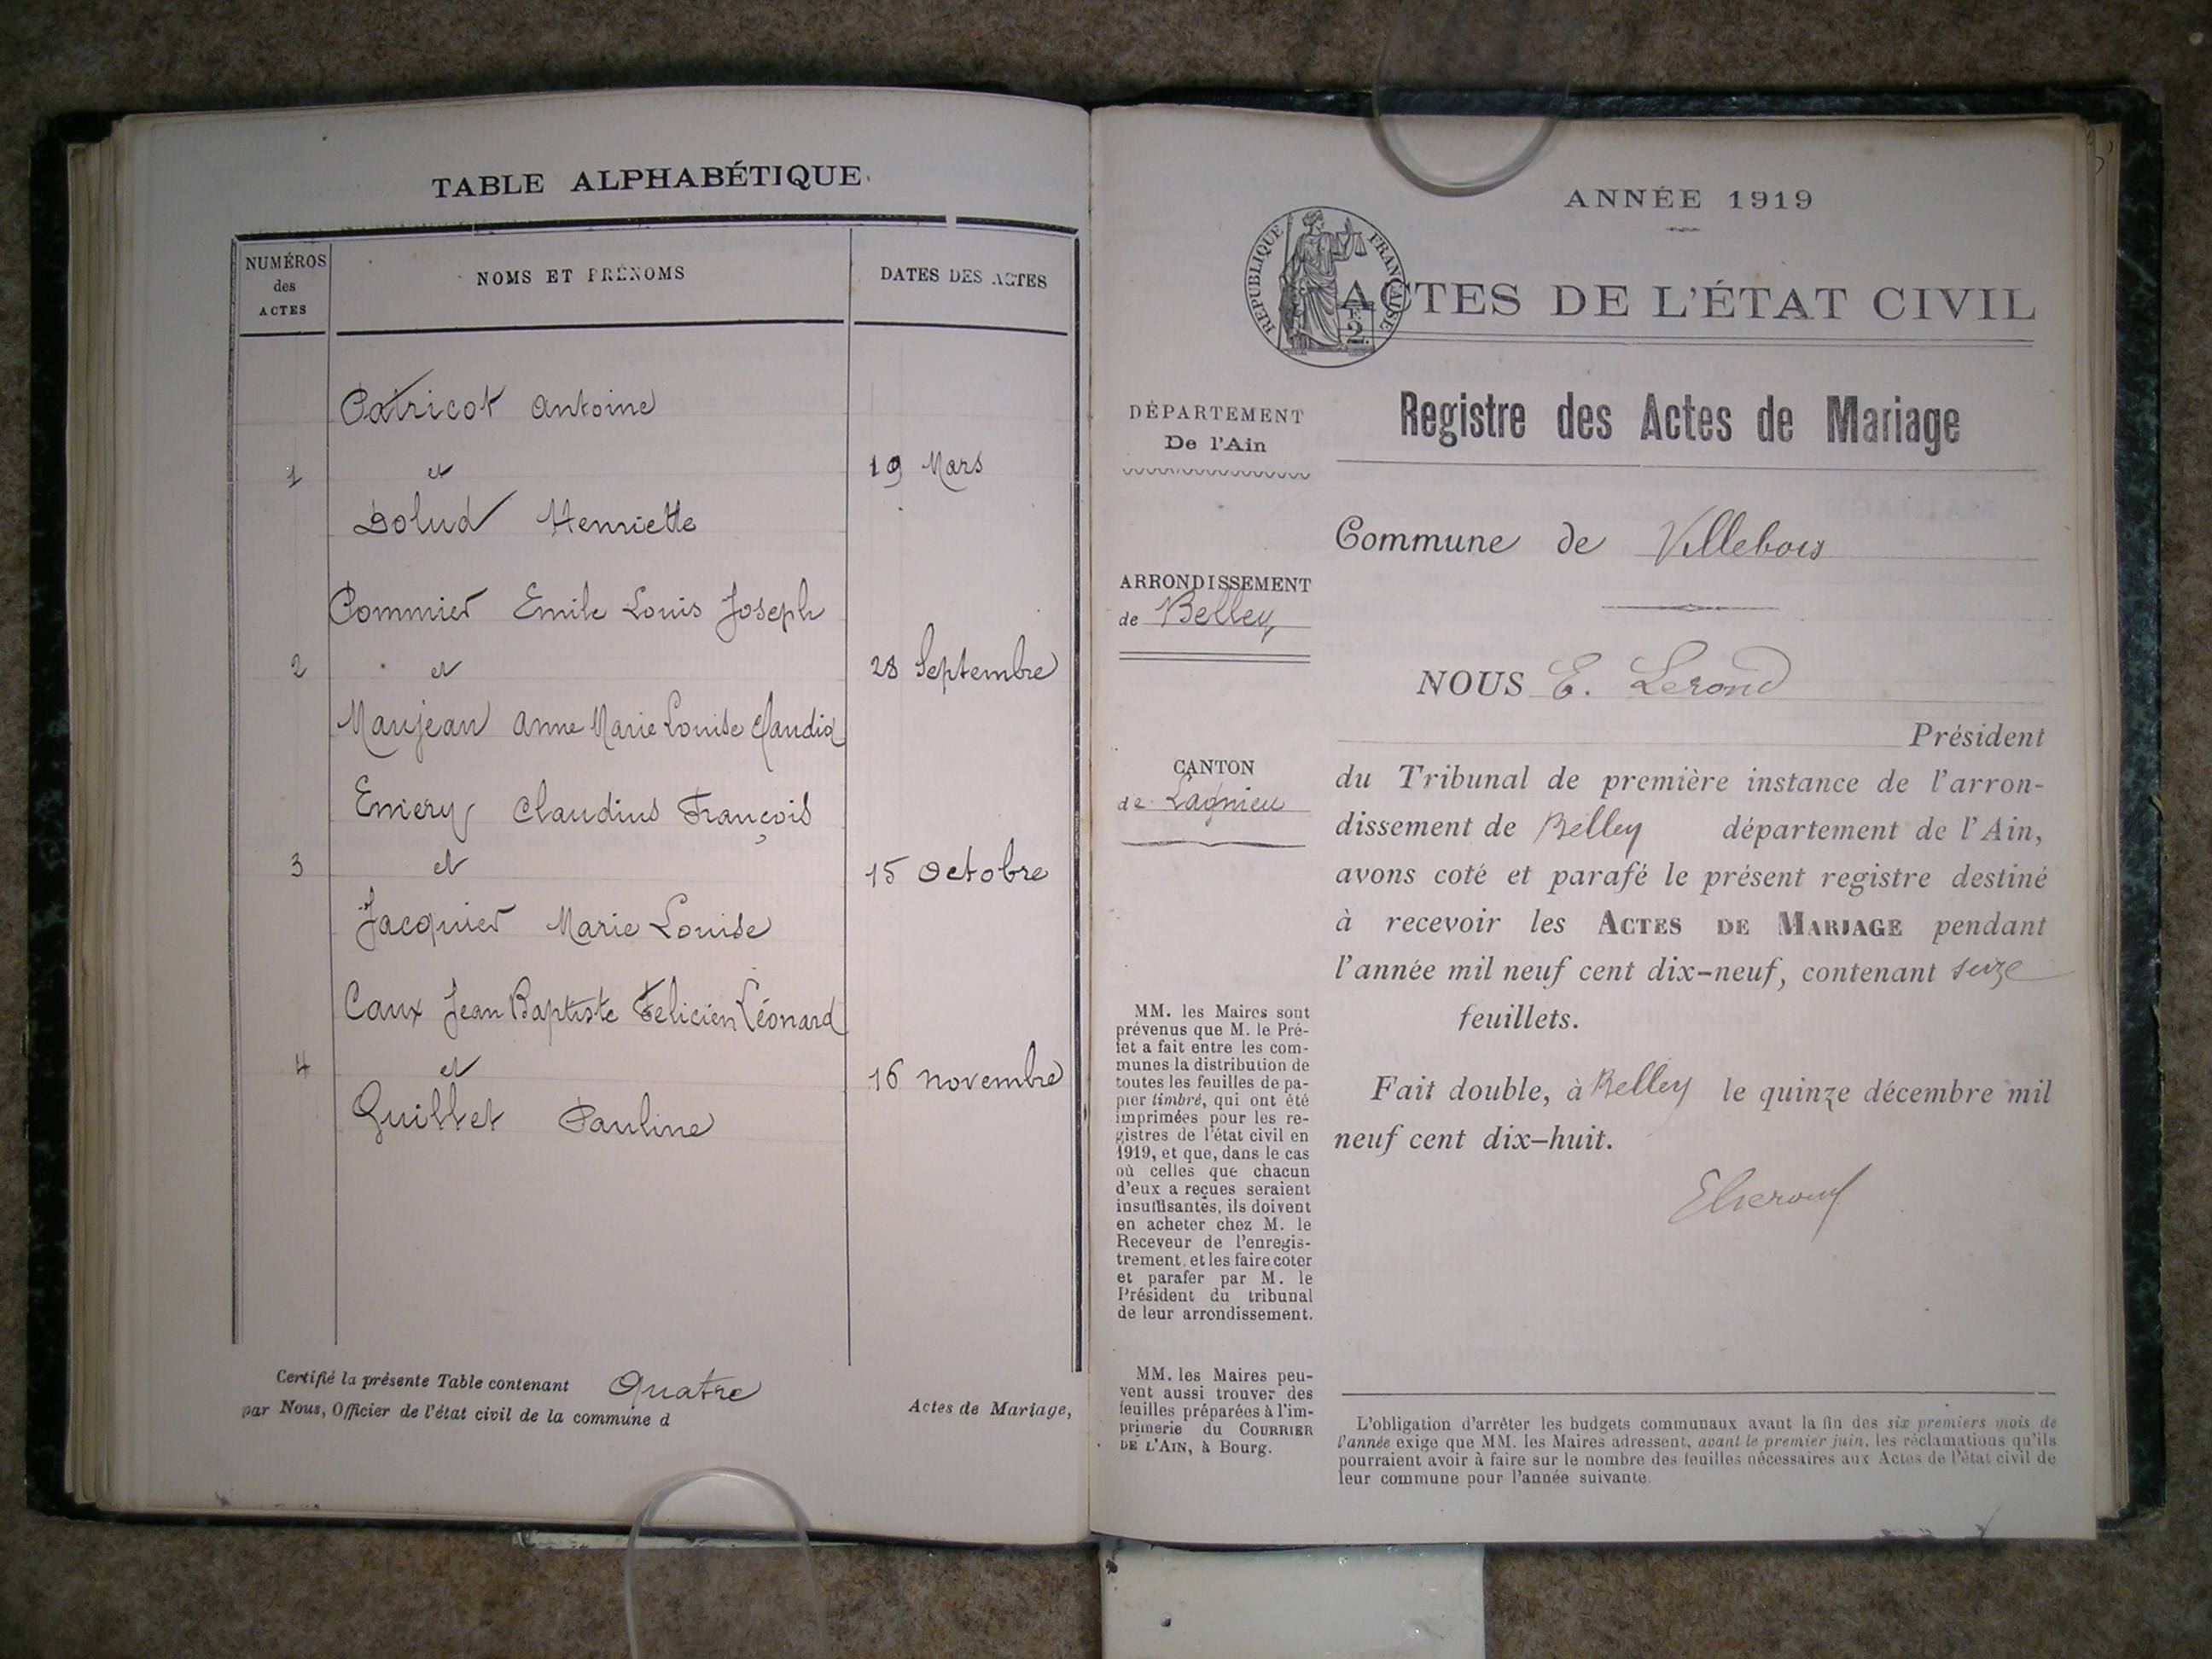 TABLE ALPHABÉTIQUE
NUMÉROS
des
ACTES
NOMS ET PRÉNOMS
DATES DES ACTES
Patricot Antoine
1 et 19 Mars
Dolud Henriette
Pommier Emile Louis Joseph
2 et 28 Septembre
Maujean Anne Marie Louise Claudia
Emery Claudius François
3 et 15 Octobre
Jacquier Marie Louise
Caux Jean Baptiste Felicien Léonard
4 et 16 novembre
Guillet Pauline
Certifié la présente Table contenant Quatre
par Nous, Officier de l'état civil de la commune d
Actes de Mariage,
ANNÉE 1919
REPUBLIQUE FRANÇAISE
2
ACTES DE L'ÉTAT CIVIL
DÉPARTEMENT
De l'Ain
Registre des Actes de Mariage
Commune de Villebois
ARRONDISSEMENT
de Belley
NOUS E. Lerond
Président
CANTON
de Lagnieu
du Tribunal de première instance de l'arron-
dissement de Belley département de l'Ain,
avons coté et parafé le présent registre destiné
à recevoir les ACTES DE MARIAGE pendant
l'année mil neuf cent dix-neuf, contenant seize
feuillets.
Fait double, à Belley le quinze décembre mil
neuf cent dix-huit.
MM. les Maires sont
prévenus que M. le Pré-
fet a fait entre les com-
munes la distribution de
toutes les feuilles de pa-
pier timbré, qui ont été
imprimées pour les re-
gistres de l'état civil en
1919, et que, dans le cas
où celles que chacun
d'eux a reçues seraient
insuffisantes, ils doivent
en acheter chez M. le
Receveur de l'enregis-
trement, et les faire coter
et parafer par M. le
Président du tribunal
de leur arrondissement.
MM. les Maires peu-
vent aussi trouver des
feuilles préparées à l'im-
primerie du COURRIER
DE L'AIN, à Bourg.
L'obligation d'arrêter les budgets communaux avant la fin des six premiers mois de
l'année exige que MM. les Maires adressent, avant le premier juin, les réclamations qu'ils
pourraient avoir à faire sur le nombre des feuilles nécessaires aux Actes de l'état civil de
leur commune pour l'année suivante.